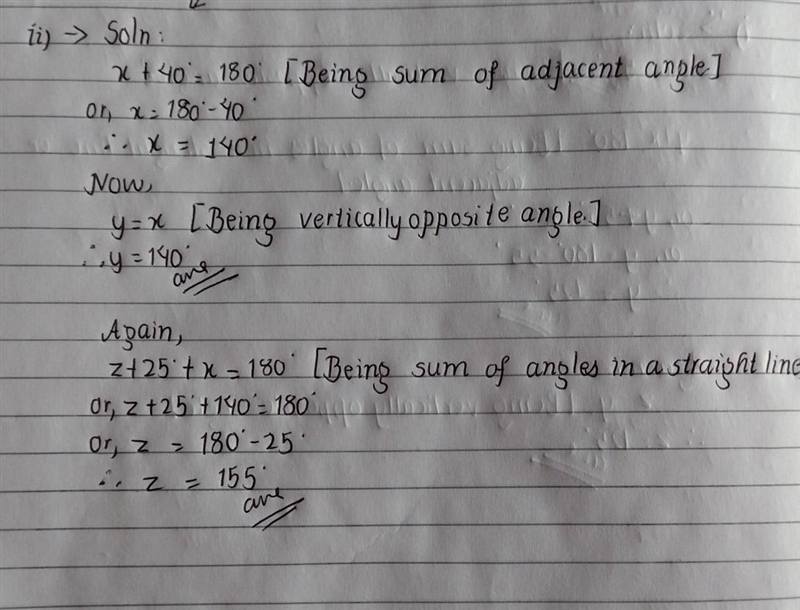 ii) → Soln:
x + 40° = 180° [Being sum of adjacent angle.]
or, x = 180° - 40°
∴ x = 140°
Now,
y = x [Being vertically opposite angle.]
∴ y = 140°
ans
Again,
z + 25° + x = 180° [Being sum of angles in a straight line
or, z + 25° + 140° = 180°
or, z = 180° - 25°
∴ z = 155°
ans